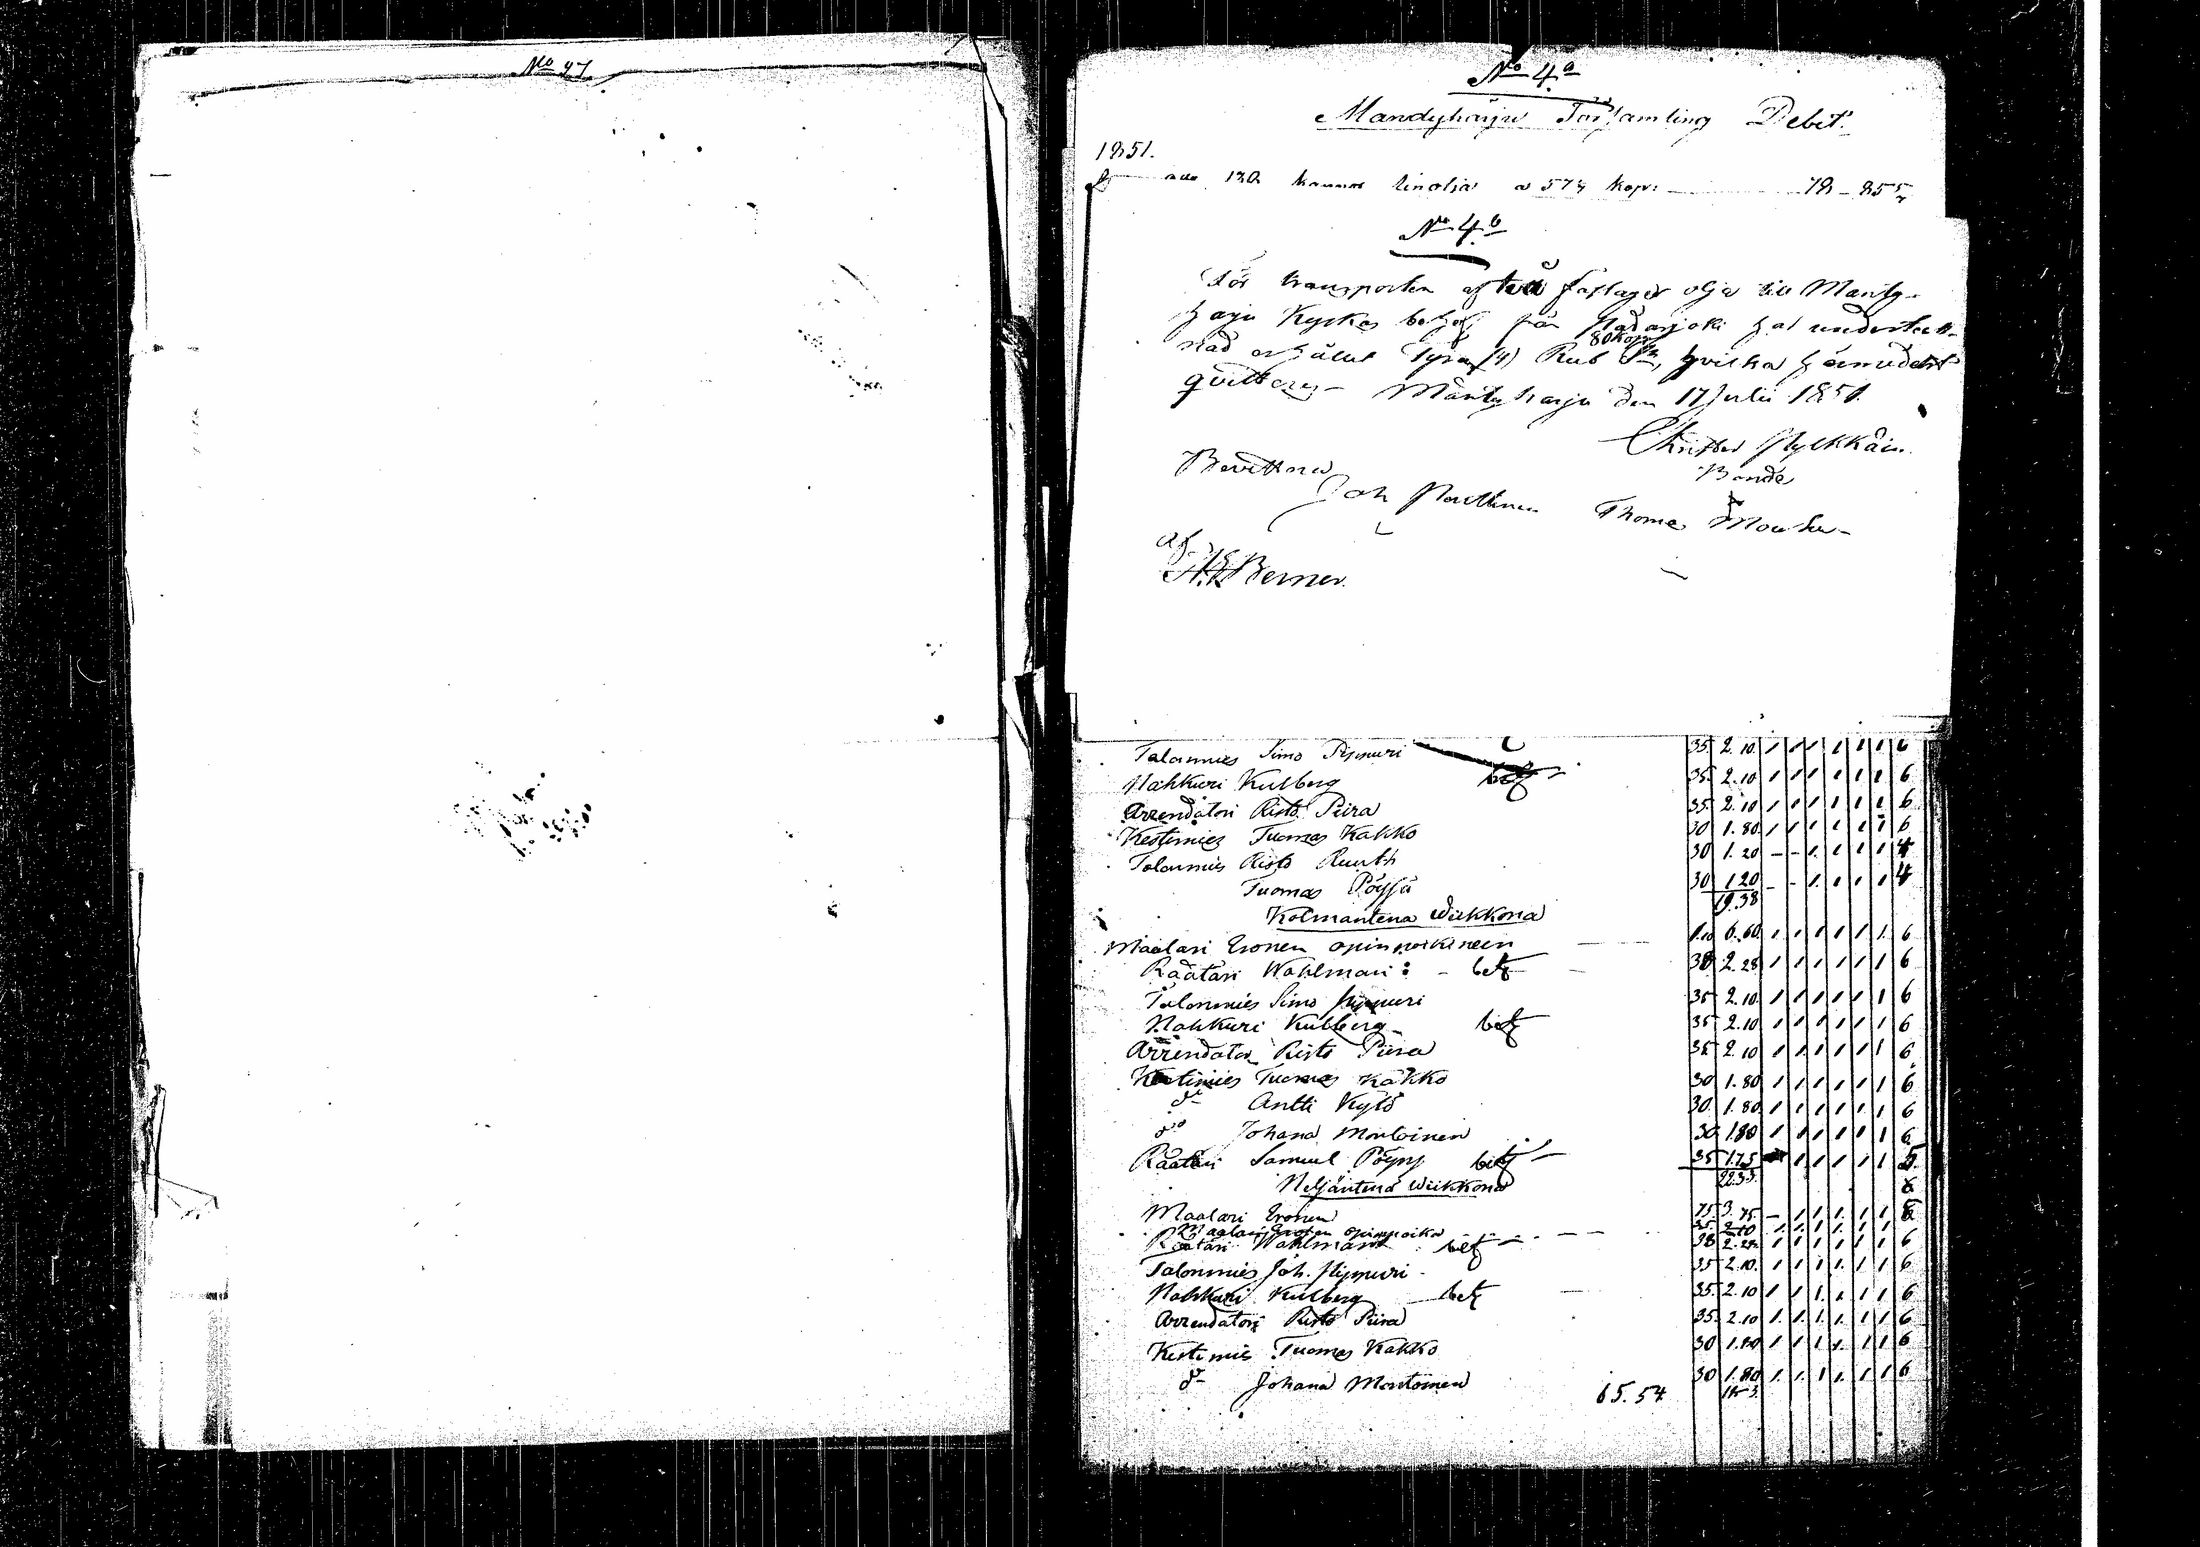 No 47
No 4a
Mandyharju Församling Debit.
1851.
130 kannor linolja a 57 4/7 kop: 78 - 85 5/7
No 4b
För transporten af två fastager olja till Mänty-
harju Kyrkas behof från har underteck-
nad erhållit Fyra (4) Rub 80 kop Sr, hvilka härmedelst
qvitteras - Mäntyharju den 17 Julii 1851.
Christer
Bonde
Bevittna
Joh Thomas
af
Berner.
Talonmies Simo 35 2.10 1 1 1 1 1 1 6
Nahkuri Kulberg bet 35 2.10 1 1 1 1 1 1 6
Arrendatori Risto Piira 35 2.10 1 1 1 1 1 1 6
Kestimies Tuomas Kakko 30 1.80 1 1 1 1 1 1 6
Talonmies Risto Ruuth 30 1.20 - - 1 1 1 1 4
Tuomas Pöyhä 30 1.20 - - 1 1 1 1 4
19.38
Kolmantena Wiikkona
Maalari Eronen opinpoikineen 1.10 6.60 1 1 1 1 1 1 6
Räätäri Wahlman: - bet 38 2.28 1 1 1 1 1 1 6
Talonmies Simo 35 2.10 1 1 1 1 1 1 6
Nahkuri Kulberg bet 35 2.10 1 1 1 1 1 1 6
Arrendator Risto Piira 35 2.10 1 1 1 1 1 1 6
Kestimies Tuomas Kakko 30 1.80 1 1 1 1 1 1 6
do Antti Kylö 30 1.80 1 1 1 1 1 1 6
do Johana Montoinen 30 1.80 1 1 1 1 1 1 6
Räätäri Samuel Pöyry bet 35 1.75 1 1 1 1 1 5
22.33
Neljäntenä Wiikkona
Maalari Eronen 75 3.75 - 1 1 1 1 1 5
Maalari Erosen opinpoika 35 2.10 1 1 1 1 1 1 6
Räätäri Wahlman bet 38 2.28 1 1 1 1 1 1 6
Talonmies Joh. 35 2.10 1 1 1 1 1 1 6
Nahkuri Kulberg bet 35 2.10 1 1 1 1 1 1 6
Arrendatori Risto Piira 35 2.10 1 1 1 1 1 1 6
Kestimies Tuomas Kakko 30 1.80 1 1 1 1 1 1 6
do Johana Montoinen 30 1.80 1 1 1 1 1 1 6
65.54